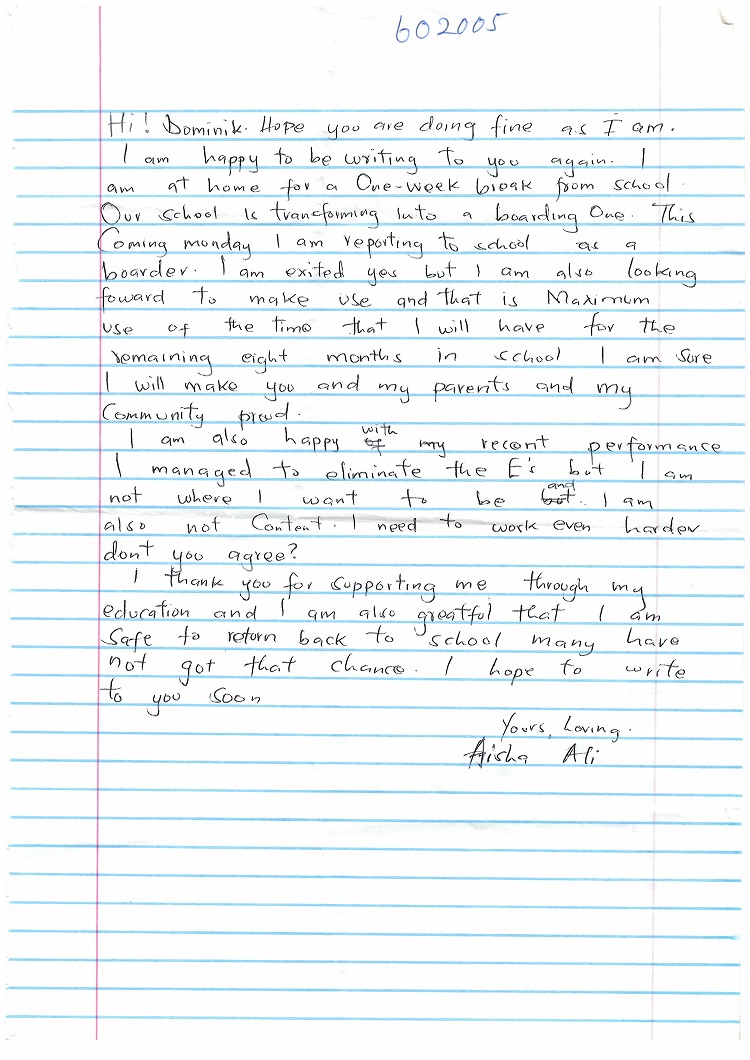 602005
Hi! Dominik. Hope you are doing fine as I am.
I am happy to be writing to you again. I
am at home for a One-week break from school.
Our school is transforming into a boarding One. This
Coming monday I am reporting to school as a
boarder. I am exited yes but I am also looking
foward to make use and that is Maximum
use of the time that I will have for the
remaining eight months in school I am sure
I will make you and my parents and my
Community proud.
I am also happy with my recent performance
I managed to eliminate the E's but I am
not where I want to be and. I am
also not Content. I need to work even harder
don't you agree?
I thank you for supporting me through my
education and I am also greatful that I am
safe to return back to school many have
not got that chance. I hope to write
to you soon
Yours, Loving.
Aisha Ali